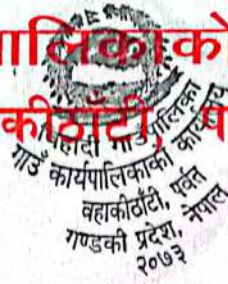 पालिकाको
कीठाँटी, प
बिहादी गाउँपालिका
गाउँ कार्यपालिकाको कार्यालय
वहाकीठाँटी, पर्वत
गण्डकी प्रदेश, नेपाल
२०७३